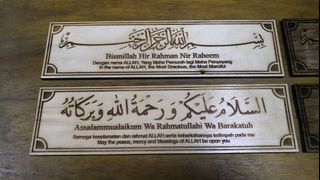 بسم الله الرحمن الرحيم
Bismillah Hir Rahman Nir Raheem
Dengan nama ALLAH, Yang Maha Pemurah lagi Maha Penyayang
In the name of ALLAH, the Most Gracious, the Most Merciful
السَّلَامُ عَلَيْكُمْ وَرَحْمَةُ اللهِ وَبَرَكَاتُهُ
Assalammualaikum Wa Rahmatullahi Wa Barakatuh
Semoga kesejahteraan dan rahmat ALLAH serta keberkatannya terlimpah pada mu
May the peace, mercy and blessings of ALLAH be upon you